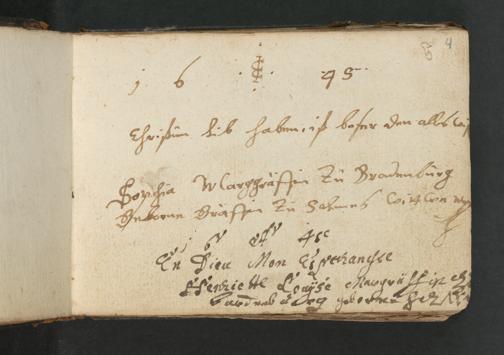 4
1 6 45
Christum lib haben, ist beser den alles
Sophia Marggräffin Zu Brandenburg
Geborne Gräffin Zu Solmes
16 45
En Dieu Mon Esperanchse
Henriette Louÿse Margräffin